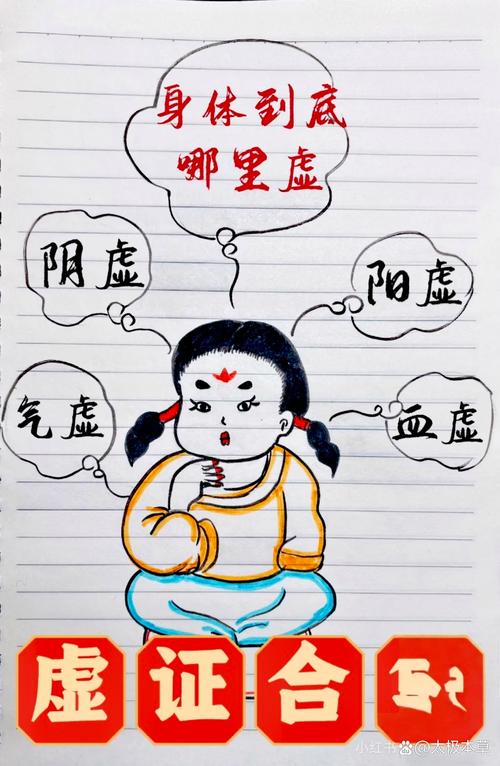 身体到底
哪里虚
阴虚
阳虚
气虚
血虚
虚证合
小红书
@太极本草